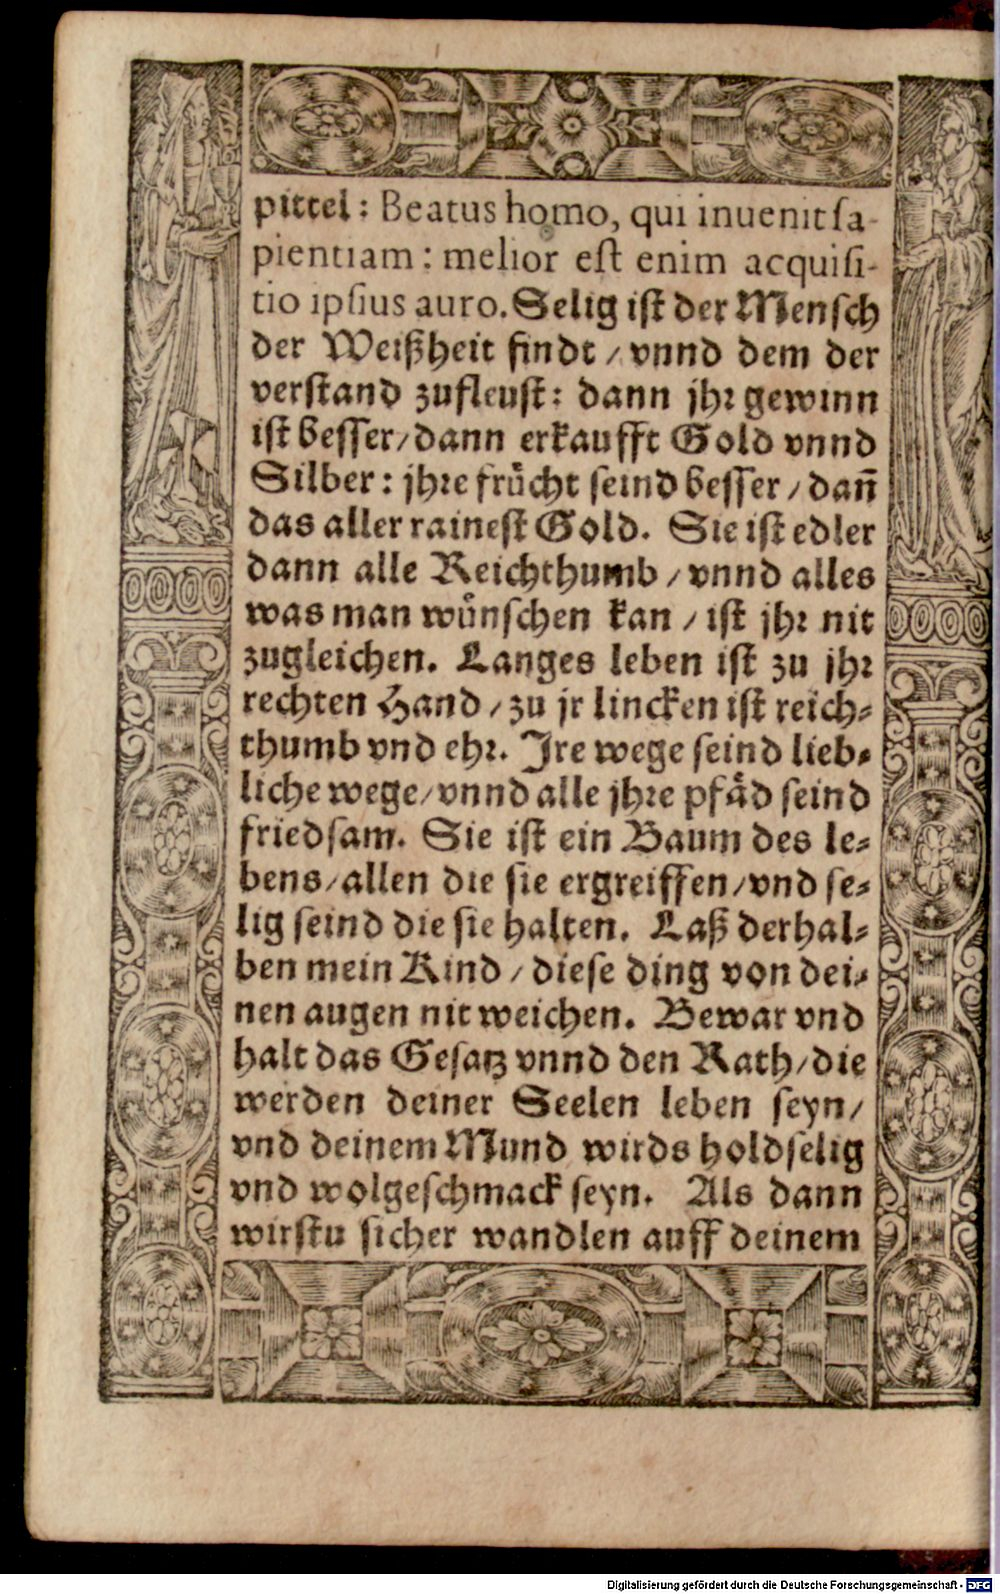 pittel: Beatus homo, qui inuenit ſa-
pientiam: melior eſt enim acquiſi-
tio ipſius auro. Selig iſt der Menſch
der Weißheit findt / vnnd dem der
verſtand zufleuſt: dann jhr gewinn
iſt beſſer / dann erkaufft Gold vnnd
Silber: jhre fruͤcht ſeind beſſer / dañ
das aller raineſt Gold. Sie iſt edler
dann alle Reichthumb / vnnd alles
was man wuͤnſchen kan / iſt jhr nit
zugleichen. Langes leben iſt zu jhr
rechten Hand / zu jr lincken iſt reich⸗
thumb vnd ehr. Ire wege ſeind lieb⸗
liche wege / vnnd alle jhre pfaͤd ſeind
friedſam. Sie iſt ein Baum des le⸗
bens / allen die ſie ergreiffen / vnd ſe⸗
lig ſeind die ſie halten. Laß derhal⸗
ben mein Kind / dieſe ding von dei⸗
nen augen nit weichen. Bewar vnd
halt das Geſatz vnnd den Rath / die
werden deiner Seelen leben ſeyn /
vnd deinem Mund wirds holdſelig
vnd wolgeſchmack ſeyn. Als dann
wirſtu ſicher wandlen auff deinem
Digitalisierung gefördert durch die Deutsche Forschungsgemeinschaft - DFG